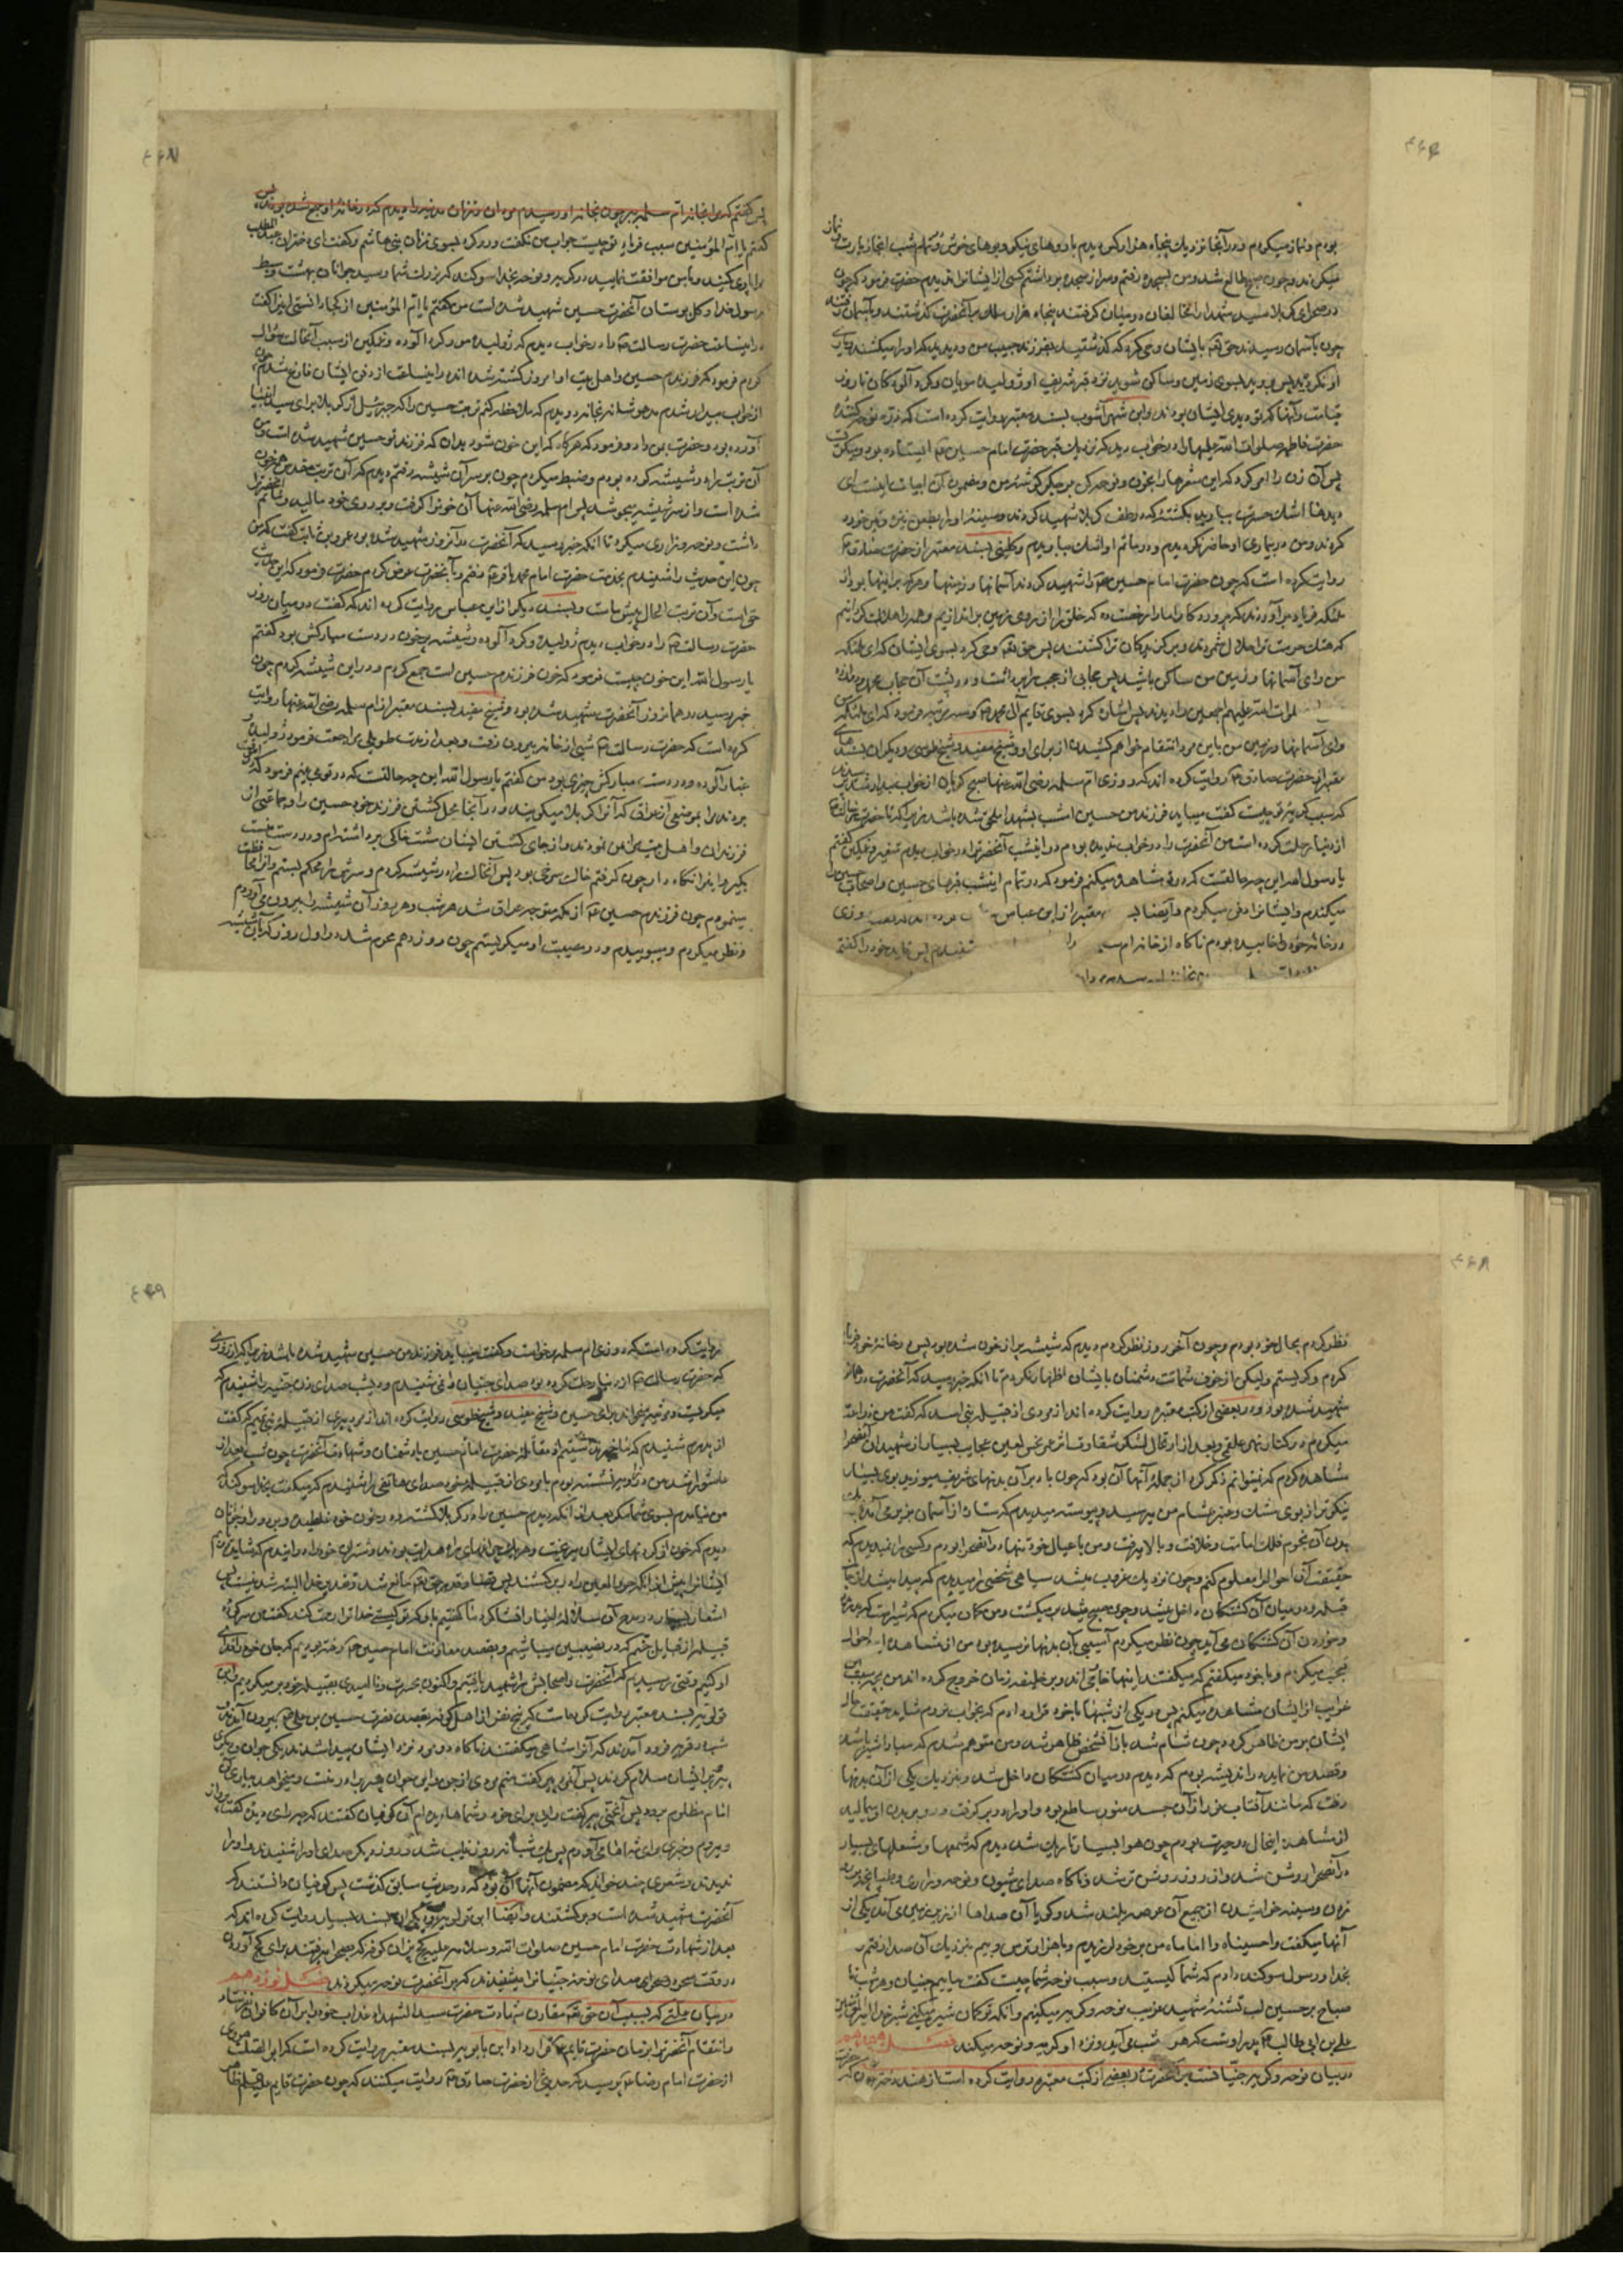 ۴۴۶
بودم و نماز میکردم و در آنجا نزدیك پنجاه هزار کس دیدم با روهای نیکو و بوهای خوش و تمام شب آنجا زیارت و نماز
میکردند و چون صبح طالع شد و من بسجده رفتم و سر از سجده برداشتم کسی از ایشانرا ندیدم حضرت فرمود که چون
در صحرای کربلا سید شهدا را مخالفان در میان گرفتند پنجاه هزار ملك بر آنحضرت گذشتند و بآسمان رفتند
چون بآسمان رسیدند حق تعالی بایشان وحی کرد که گذشتید بفرزند حبیب من و دیدید که او را میکشند و یاری
او نکردید پس بروید بسوی زمین و ساکن شوید نزد قبر شریف او ژولیده مویان و گرد آلودگان تا روز
قیامت و آنها که تو دیدی ایشان بودند و ابن شهر آشوب بسند معتبر روایت کرده است که ذره نوحه کننده
حضرت فاطمه صلوات الله علیها را در خواب دید که نزدیك قبر حضرت امام حسین ع ایستاده بود و میگریست
پس آن زن را امر کرد که این شعرها را بخوان و نوحه کن بر جگر گوشه من و مضمون آن ابیات اینست ای
دیدها اشك حسرت ببارید بر کشته که در طف کربلا شهید کردند و سینه او را بطعن نیزه و تیر خورد
کردند و من در بیماری او حاضر نگردیدم و در ماتم او اشك نباریدم و کلینی بسند معتبر از حضرت صادق ع
روایت کرده است که چون حضرت امام حسین ع را شهید کردند آسمانها و زمینها و هر که بر اینها بود از
ملئکه فریاد بر آوردند که پروردگارا ما را رخصت ده که خلق را از روی زمین بر اندازیم و همه را هلاك گردانیم
که هتك حرمت ترا حلال شمردند و برگزیدگان ترا کشتند پس حق تعالی وحی کرد بسوی ایشان که ای ملئکه
من و ای آسمانها و زمین من ساکن باشید پس حجابی از حجب را برداشت و در پشت آن حجاب محمد و دوازده
صلوات الله علیهم اجمعین را دیدند پس اشاره کرد بسوی قایم آل محمد ع و سه مرتبه فرمود که ای ملئکه من
و ای آسمانها و زمین من باین مرد انتقام خواهم کشید از برای او و شیخ مفید و شیخ طوسی و دیگران بسندهای
معتبر از حضرت صادق ع روایت کرده اند که روزی ام سلمه رضی الله عنها صبح گریان از خواب بیدار شد پرسیدند
که سبب گریه تو چیست گفت میباید فرزند من حسین امشب بشهدا ملحق شده باشد زیرا که تا حضرت رسالت
از دنیا رحلت کرده است من آنحضرت را در خواب ندیده بودم در اینشب آنحضرت را در خواب دیدم متغیر و غمگین گفتم
یا رسول الله این چه حالتست که در تو مشاهده میکنم فرمود که در تمام اینشب قبرهای حسین و اصحاب حسین را
میکندم و ایشانرا دفن میکردم و ایضا بسند معتبر از ابن عباس روایت کرده اند که روزی
در خانه خود خوابیده بودم ناگاه از خانه ام سلمه شنیدم پس قاید خود را گفتم
۴۴۷
پس گفتم که مرا بخانه ام سلمه ببر چون بخانه او رسیدم مردان و زنان مدینه را دیدم که در خانه او جمع شده بودند پس
گفتم یا ام المؤمنین سبب فریاد تو چیست جواب من نگفت و رو کرد بسوی زنان بنی هاشم و گفت ای دختران عبدالمطلب
مرا یاری کنید و با من موافقت نمایید در گریه و نوحه بخدا سوگند که بزرگ شما و سید جوانان بهشت و سبط
رسول خدا و گل بوستان آنحضرت حسین شهید شده است من گفتم یا ام المؤمنین از کجا دانستی اینرا گفت
در اینساعت حضرت رسالت ص را در خواب دیدم که ژولیده مو و گرد آلوده و غمگین از سبب آنحالت سؤال
کردم فرمود که فرزندم حسین و اهل بیت او امروز کشته شده اند و در اینساعت از دفن ایشان فارغ شدم چون
از خواب بیدار شدم مدهوشانه بخانه دویدم که ملاحظه کنم تربت حسین را که جبرئیل از کربلا برای سید انبیا
آورده بود و حضرت بمن داد و فرمود که هرگاه که این خون شود بدان که فرزند تو حسین شهید شده است و من
آن تربت را در شیشه کرده بودم و ضبط میکردم چون بر سر آن شیشه رفتم دیدم که آن تربت مقدس همه خون
شده است و از سر شیشه میجوشد پس ام سلمه رضی الله عنها آن خونرا گرفت و بر روی خود مالید و ماتم آنحضرترا
داشت و نوحه و زاری میکرد تا آنکه خبر رسید که آنحضرت در آنروز شهید شده بود عمرو بن ثابت گفت که من
چون این حدیث را شنیدم بخدمت حضرت امام محمد باقر ع رفتم و بآنحضرت عرض کردم حضرت فرمود که این حدیث
حق است و آن تربت الحال پیش ماست و بسند دیگر از ابن عباس روایت کرده اند که گفت در میان روز
حضرت رسالت ص را در خواب دیدم ژولیده و گرد آلوده و شیشه پر خون در دست مبارکش بود گفتم
یا رسول الله این خون چیست فرمود که خون فرزندم حسین است جمع کردم و در این شیشه کردم چون
خبر رسید در همانروز آنحضرت شهید شده بود و شیخ مفید بسند معتبر از ام سلمه رضی الله عنها روایت
کرده است که حضرت رسالت ص شبی از خانه بیرون رفت و بعد از مدت طویلی مراجعت فرمود ژولیده و
غبار آلوده و در دست مبارکش چیزی بود من گفتم یا رسول الله این چه حالتست که در تو می بینم فرمود که
بردند مرا بموضعی از عراق که آنرا کربلا میگویند و در آنجا محل کشتن فرزند خود حسین را و جماعتی از
فرزندان و اهل بیت مرا بمن نمودند و از جای کشتن ایشان مشت خاکی برداشته ام و در دست منست
بگیر و اینرا نگاه دار چون گرفتم خاك سرخی بود پس آنخاك را در شیشه کردم و سرش را محکم بستم و از آن محافظت
مینمودم چون فرزندم حسین ع از مکه متوجه عراق شد هر شب و هر روز آن شیشه را بیرون می آوردم
و نظر میکردم و میبوییدم و در مصیبت او میگریستم چون روز دهم محرم شد در اول روز که بآن شیشه
۴۴۸
نظر کردم بحال خود بودم و چون آخر روز نظر کردم دیدم که شیشه پر از خون شده بود پس در خانه خود فریاد
کردم و گریستم ولیکن از خوف شماتت دشمنان بایشان اظهار نکردم تا آنکه خبر رسید که آنحضرت در همانروز
شهید شده بود و در بعضی از کتب معتبره روایت کرده اند از مردی از قبیله بنی اسد که گفت من زراعت
میکردم در کنار نهر علقمی و بعد از ارتحال لشکر شقاوت اثر عمر نحس لعین عجایب بسیار از شهیدان آنصحرا
مشاهده کردم که نمیتوانم ذکر کرد از جمله آنها آن بود که چون باد بر آن بدنهای شریف میوزید بوی بسیار
نیکوتر از بوی مشك و عنبر بمشام من میرسید و پیوسته میدیدم که ستاره از آسمان بزیر می آمد
بدن آن نجوم فلك امامت و خلافت و بالا میرفت و من با عیال خود تنها در آنصحرا بودم و کسی را نمیدیدم که
حقیقت آن احوالرا معلوم کنم و چون نزدیك غروب میشد سیاهی شخصی را میدیدم که پیدا میشد از جانب
قبله و در میان آن کشتگان داخل میشد و چون صبح میشد بر میگشت و من گمان میکردم که شیریست که
و خوردن آن کشتگان می آید چون نظر میکردم آسیبی بآن بدنها نرسیده بود من از مشاهده این احوال
تعجب میکردم و با خود میگفتم که میگفتند اینها خارجی اند و بر خلیفه زمان خروج کرده اند من بچه سبب این
غرایب از ایشان مشاهده میکنم پس در یکی از شبها با خود قرار دادم که بخواب نروم شاید حقیقت حال
ایشان بر من ظاهر گردد چون شام شد باز آنشخص ظاهر شد و من متوهم شدم که مبادا شیر باشد
و قصد من نماید در اندیشه بودم که دیدم در میان کشتگان داخل شد و بنزدیك یکی از آن بدنها
رفت که مانند آفتاب نور از آن جسد منور ساطع بود و او را در بر گرفت و رو بر بدن او میمالید
از مشاهده اینحال در حیرت بودم چون هوا بسیار تاریك شد دیدم که شمعها و شعلهای بسیار
در آنصحرا روشن شد و از روز روشن تر شد و ناگاه صدای شیون و نوحه و زاری و طپانچه بر رو
زدن و سینه خراشیدن از جمیع آن عرصه بلند شد و گویا آن صداها از زیر زمین می آمد یکی از
آنها میگفت وا حسیناه وا اماماه من بر خود لرزیدم و با هزار ترس و بیم بنزدیك آن صدا رفتم و
بخدا و رسول سوگند دادم که شما کیستید و سبب نوحه شما چیست گفت ماییم جنیان و هر شب تا
صباح بر حسین لب تشنه شهید غریب نوحه و گریه میکنیم و آنکه تو گمان شیر میکنی شیر خدا امیرالمؤمنین
علی بن ابی طالب ع پدر اوست که هر شب می آید و نزد او گریه و نوحه میکند فصل هیجدهم
در بیان نوحه و گریه جنیانست بر آنحضرت در بعضی از کتب معتبره روایت کرده است از هند دختر
۴۴۹
روایت کرده است که روزی ام سلمه برخاست و گفت میباید فرزند من حسین شهید شده باشد زیرا که از روزی
که حضرت رسالت ص از دنیا رحلت کرده بود صدای جنیان را نمی شنیدم و دیشب صدای زن جنیه را شنیدم که
میگریست و مرثیه میخواند برای حسین و شیخ مفید و شیخ طوسی روایت کرده اند از مرد پیری از قبیله بنی تمیم که گفت
از پدرم شنیدم که ما خبر نداشتیم از مقاتله حضرت امام حسین با دشمنان و شهادت آنحضرت چون شب بعد از
عاشورا شد من در رابیه نشسته بودم با مردی از قبیله خود صدای هاتفی را شنیدم که میگفت بخدا سوگند که
من نیامدم بسوی شما مگر بعد از آنکه دیدم حسین را در کربلا کشته و در خون خود غلطیده و بر دور او جوانان
دیدم که خون از گردنهای ایشان میریخت و هر یك چراغهای راه هدایت بودند و شتران خود را دوانیدم که شاید
ایشانرا پیش از آنکه حور العین را در بر کشند پس قضا و قدر حق تعالی مانع شد و تقدیر خدا البته شدنیست پس
اشعار بسیار در مدح آن سلاله اخیار انشا کرد ما گفتیم باو که تو کیستی خدا ترا رحمت کند گفت من سرکرده
قبیله از قبایل جنم که در نصیبین میباشیم و بقصد معاونت امام حسین ع رفته بودیم که جان خود را فدای
او کنیم وقتی رسیدیم که آنحضرت و اصحابش را شهید یافتیم و اکنون بحسرت و ناامیدی بقبیله خود بر میگردیم و ابن
قولویه بسند معتبر روایت کرده است که پنج نفر از اهل کوفه بقصد نصرت حسین بن علی ع بیرون آمدند
شب در قریه فرود آمدند که آنرا شاهی میگفتند ناگاه دو مرد نزد ایشان پیدا شدند یکی جوان و دیگری
پیر و بر ایشان سلام کردند پس آنمرد پیر گفت منم مردی از جن و این جوان پسر برادر منست و میخواهد یاری آن
امام مظلوم برود پس آنجنی پیر گفت رایی برای خود و شما دیده ام آن کوفیان گفتند که چه رای دیده گفت پرواز
میروم و خبری برای شما می آورم پس یك شبانه روز غایب شد و روز دیگر صدای او را شنیدند و او را
ندیدند و شعری چند خواند که مضمون آنها آن بود که در حدیث سابق گذشت پس کوفیان دانستند که
آنحضرت شهید شده است و بر گشتند و ایضا ابن قولویه و دیگران بسند بسیار روایت کرده اند که
بعد از شهادت حضرت امام حسین صلوات الله و سلامه علیه گچ پزان کوفه که بصحرا میرفتند برای گچ آوردن
در وقت سحر در صحرا صدای نوحه جنیانرا میشنیدند که بر آنحضرت نوحه میکردند فصل نوزدهم
در بیان علتی که بسبب آن حق تعالی مقارن شهادت حضرت سید الشهدا عذاب خود را بر آن کافران نفرستاد
و انتقام آنحضرترا بزمان حضرت قایم ع قرار داد ابن بابویه بسند معتبر روایت کرده است که ابو الصلت هروی
از حضرت امام رضا ع پرسید که حدیثی از حضرت صادق ع روایت میکنند که چون حضرت قایم ع